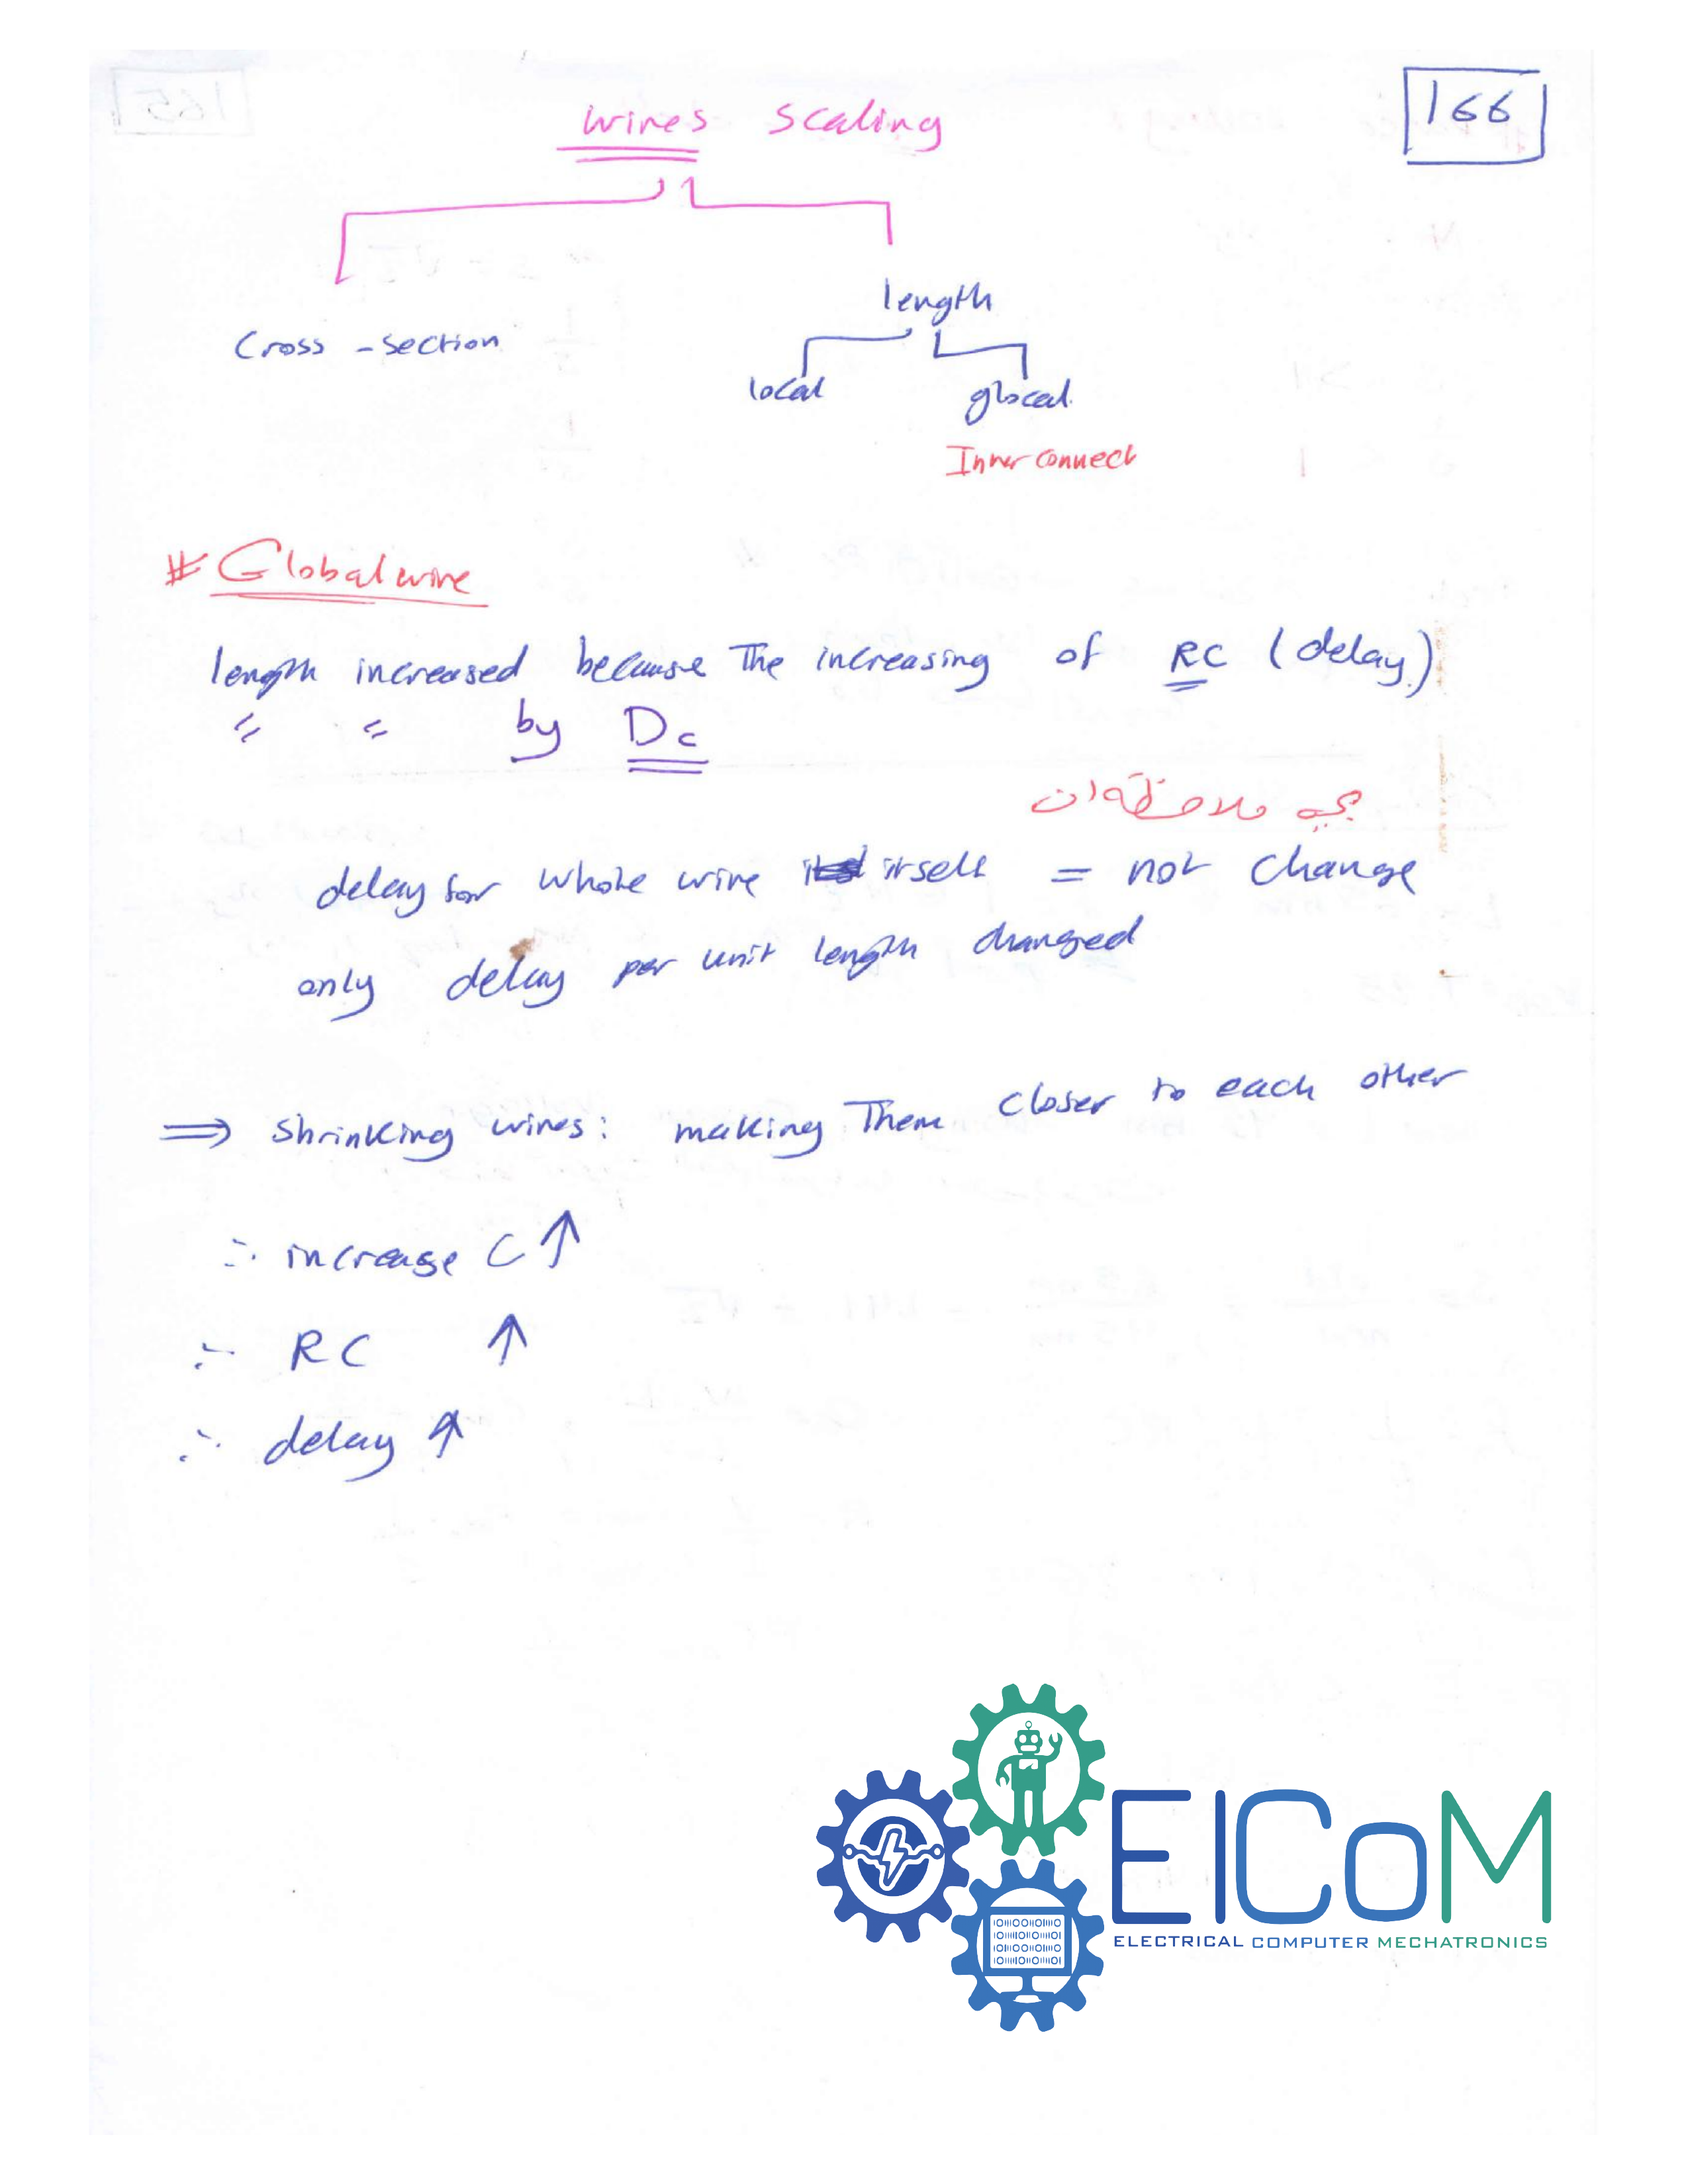 166
wires scaling
Cross-section
length
local
glocal
Inner connect
# Global wire
length increased because The increasing of RC (delay)
〃 〃 by Dc
يجب ملاحظة ان
delay for whole wire itself = not change
only delay per unit length changed
⇒ shrinking wires: making Them closer to each other
∴ increase C ↑
∴ RC ↑
∴ delay ↑
EICoM
ELECTRICAL COMPUTER MECHATRONICS